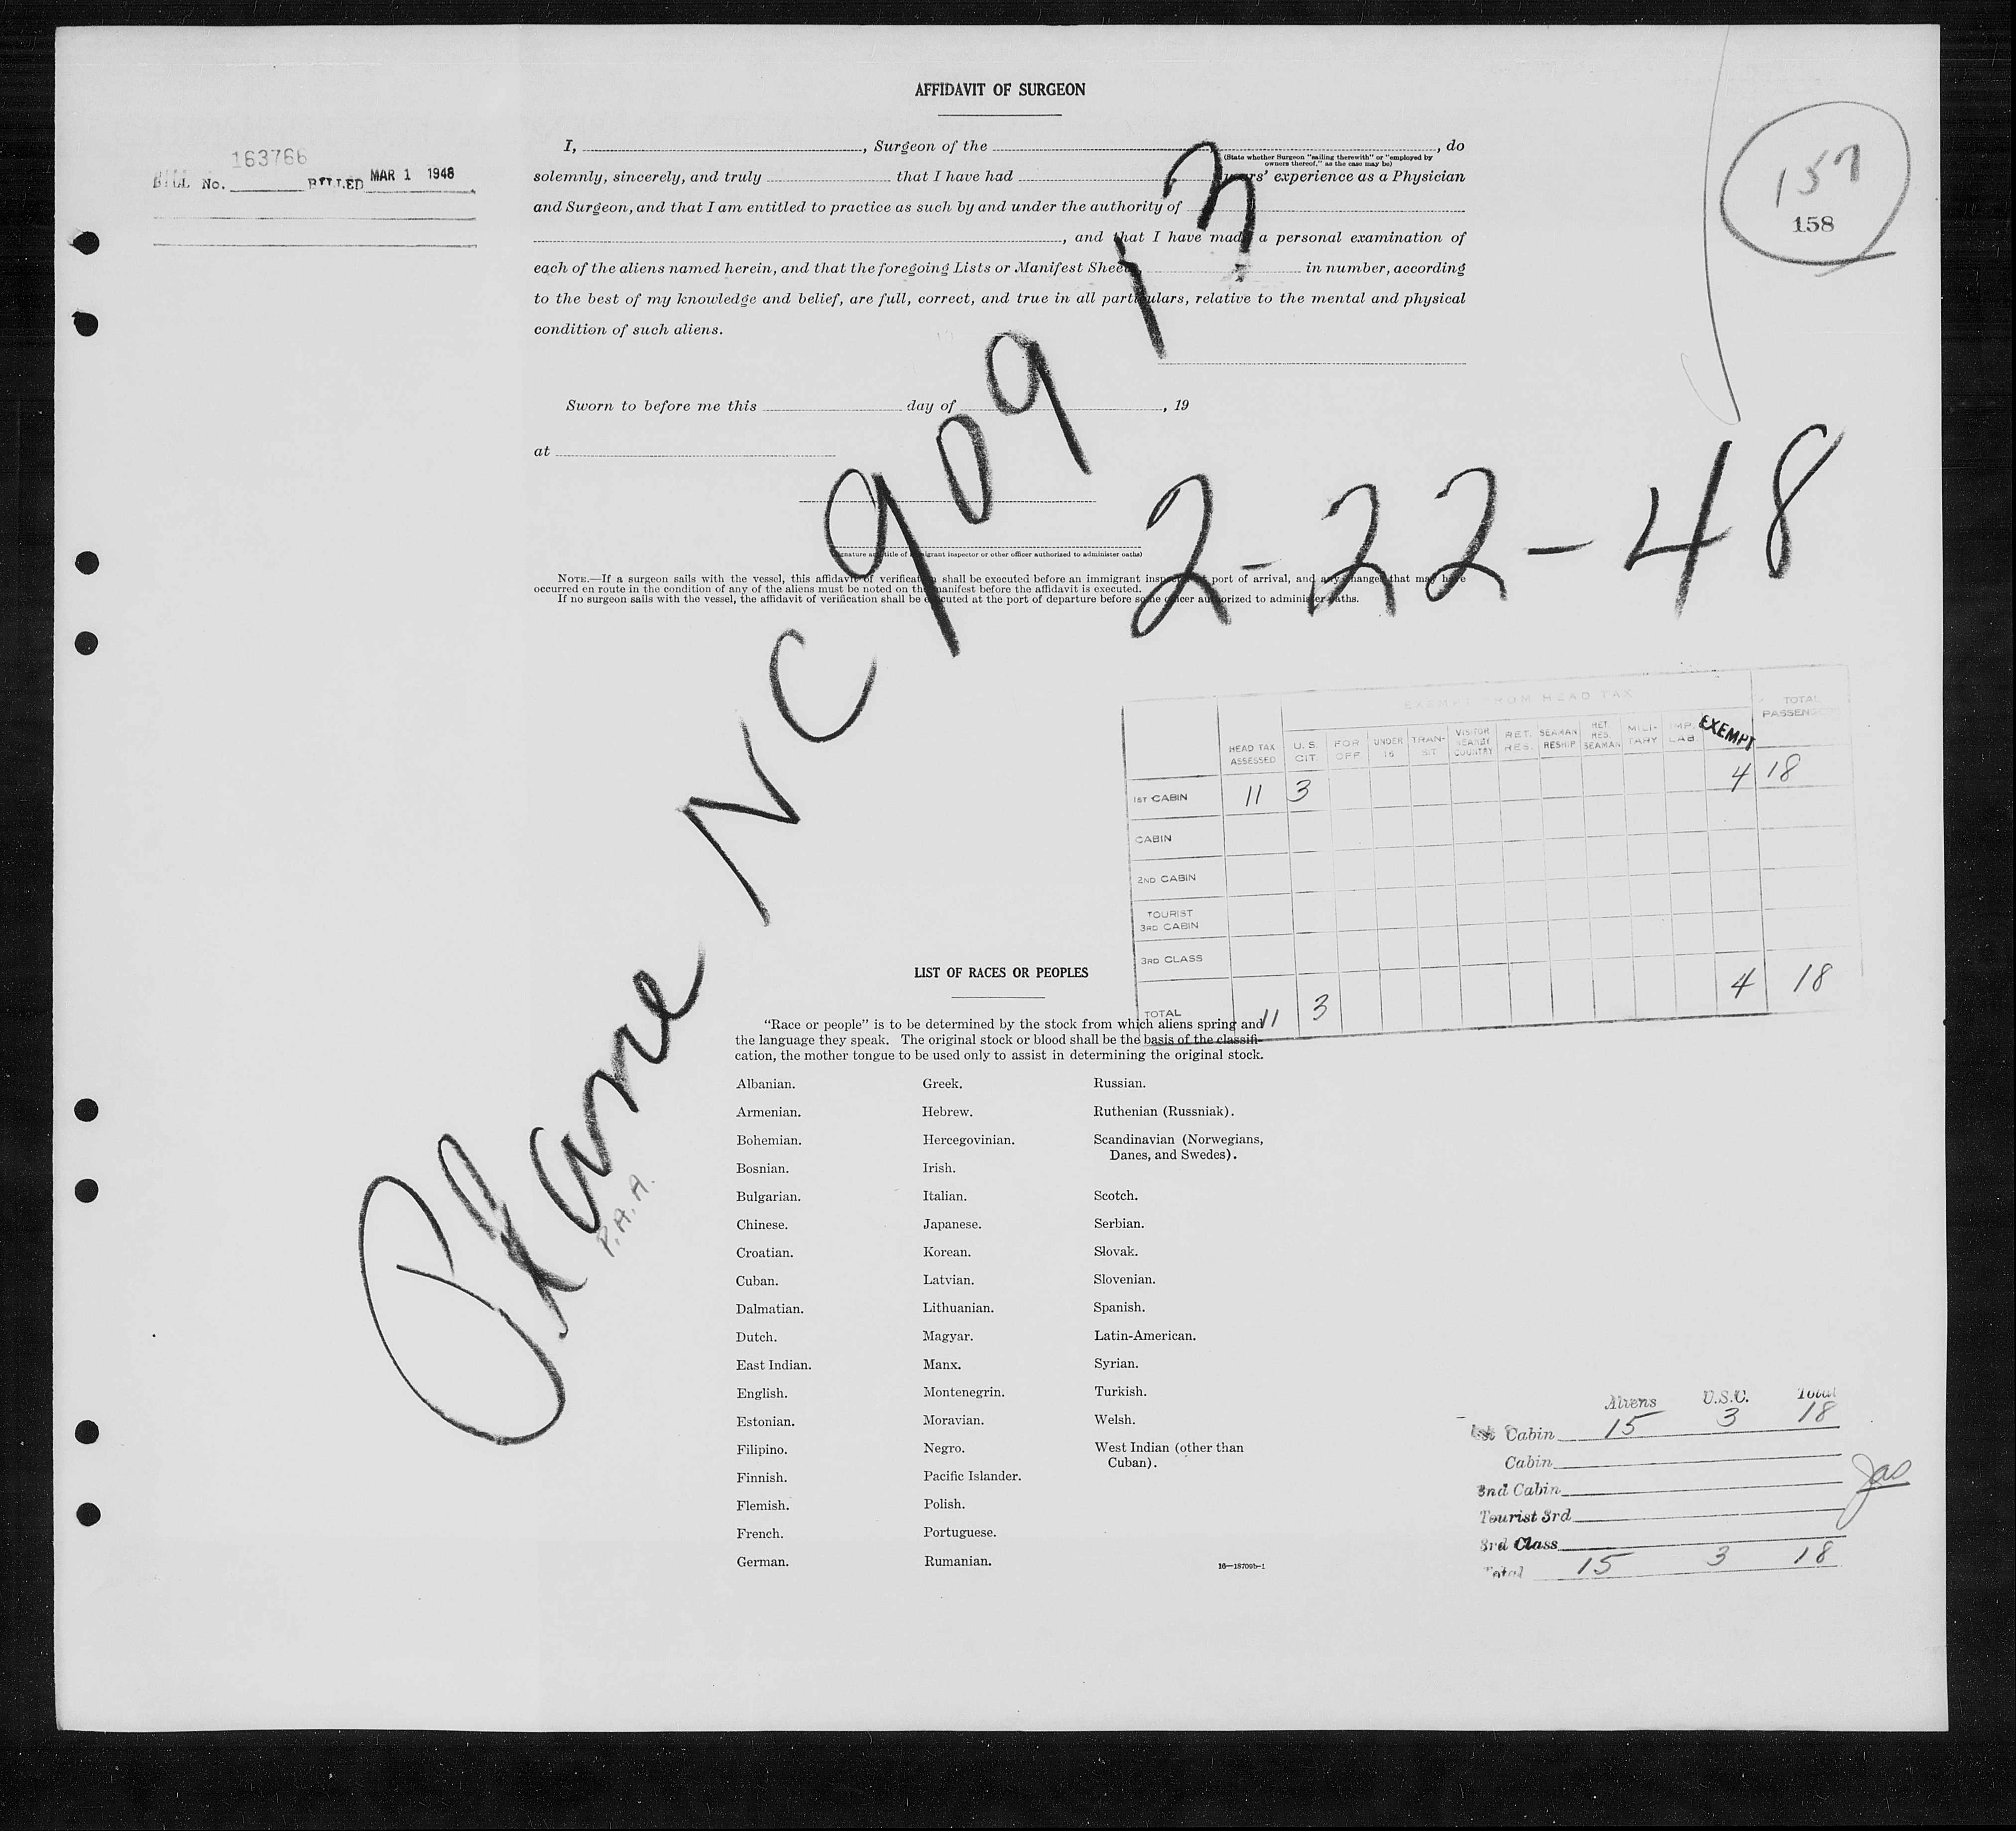 AFFIDAVIT OF SURGEON
163766
BILL No. BILLED MAR 1 1948
I, , Surgeon of the , do
(State whether Surgeon "sailing therewith" or "employed by
owners thereof," as the case may be)
solemnly, sincerely, and truly that I have had years' experience as a Physician
and Surgeon, and that I am entitled to practice as such by and under the authority of
, and that I have made a personal examination of
each of the aliens named herein, and that the foregoing Lists or Manifest Sheets, in number, according
to the best of my knowledge and belief, are full, correct, and true in all particulars, relative to the mental and physical
condition of such aliens.
157
158
Sworn to before me this day of , 19
at
(Signature and title of immigrant inspector or other officer authorized to administer oaths)
NOTE.—If a surgeon sails with the vessel, this affidavit of verification shall be executed before an immigrant inspector at port of arrival, and any changes that may have
occurred en route in the condition of any of the aliens must be noted on the manifest before the affidavit is executed.
If no surgeon sails with the vessel, the affidavit of verification shall be executed at the port of departure before some officer authorized to administer oaths.
Plane NC 90913
P.A.A.
2-22-48
EXEMPT FROM HEAD TAX
HEAD TAX ASSESSED U. S. CIT. FOR OFF UNDER 16 TRAN-SIT VISITOR NEARBY COUNTRY RET. RES. SEAMAN RESHIP RET. RES. SEAMAN MILI-TARY IMP LAB EXEMPT TOTAL PASSENGERS
1ST CABIN 11 3 4 18
CABIN
2ND CABIN
TOURIST
3RD CABIN
3RD CLASS
TOTAL 11 3 4 18
LIST OF RACES OR PEOPLES
"Race or people" is to be determined by the stock from which aliens spring and
the language they speak. The original stock or blood shall be the basis of the classifi-
cation, the mother tongue to be used only to assist in determining the original stock.
Albanian. Greek. Russian.
Armenian. Hebrew. Ruthenian (Russniak).
Bohemian. Hercegovinian. Scandinavian (Norwegians,
Danes, and Swedes).
Bosnian. Irish.
Bulgarian. Italian. Scotch.
Chinese. Japanese. Serbian.
Croatian. Korean. Slovak.
Cuban. Latvian. Slovenian.
Dalmatian. Lithuanian. Spanish.
Dutch. Magyar. Latin-American.
East Indian. Manx. Syrian.
English. Montenegrin. Turkish.
Estonian. Moravian. Welsh.
Filipino. Negro. West Indian (other than
Cuban).
Finnish. Pacific Islander.
Flemish. Polish.
French. Portuguese.
German. Rumanian.
16—18709b-1
Aliens U.S.C. Total
1st Cabin 15 3 18
Cabin
2nd Cabin
Tourist 3rd
3rd Class
Total 15 3 18